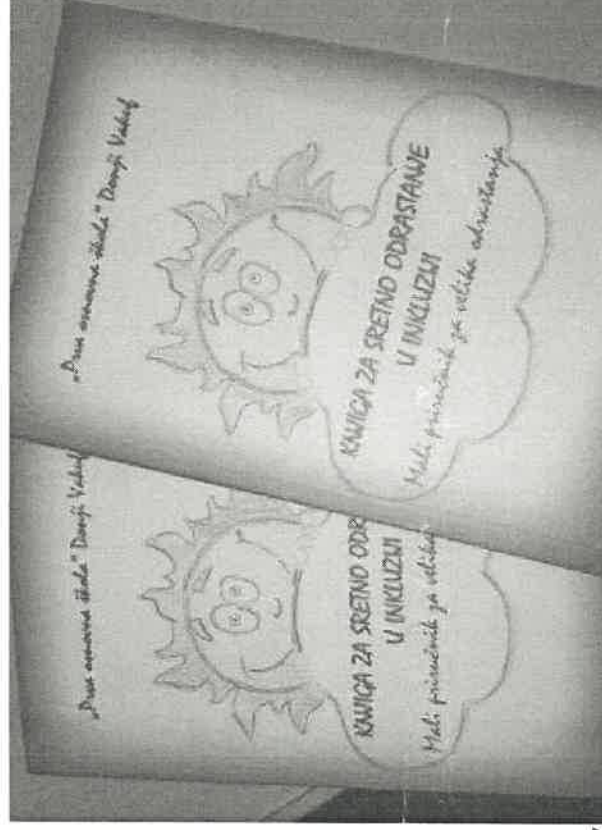 „Prva osnovna škola" Donji Vakuf
KNJIGA ZA SRETNO ODRASTANJE
U INKLUZIJI
Mali priručnik za velika odrastanja
„Prva osnovna škola" Donji Vakuf
KNJIGA ZA SRETNO ODR
U INKLUZIJI
Mali priručnik za velika